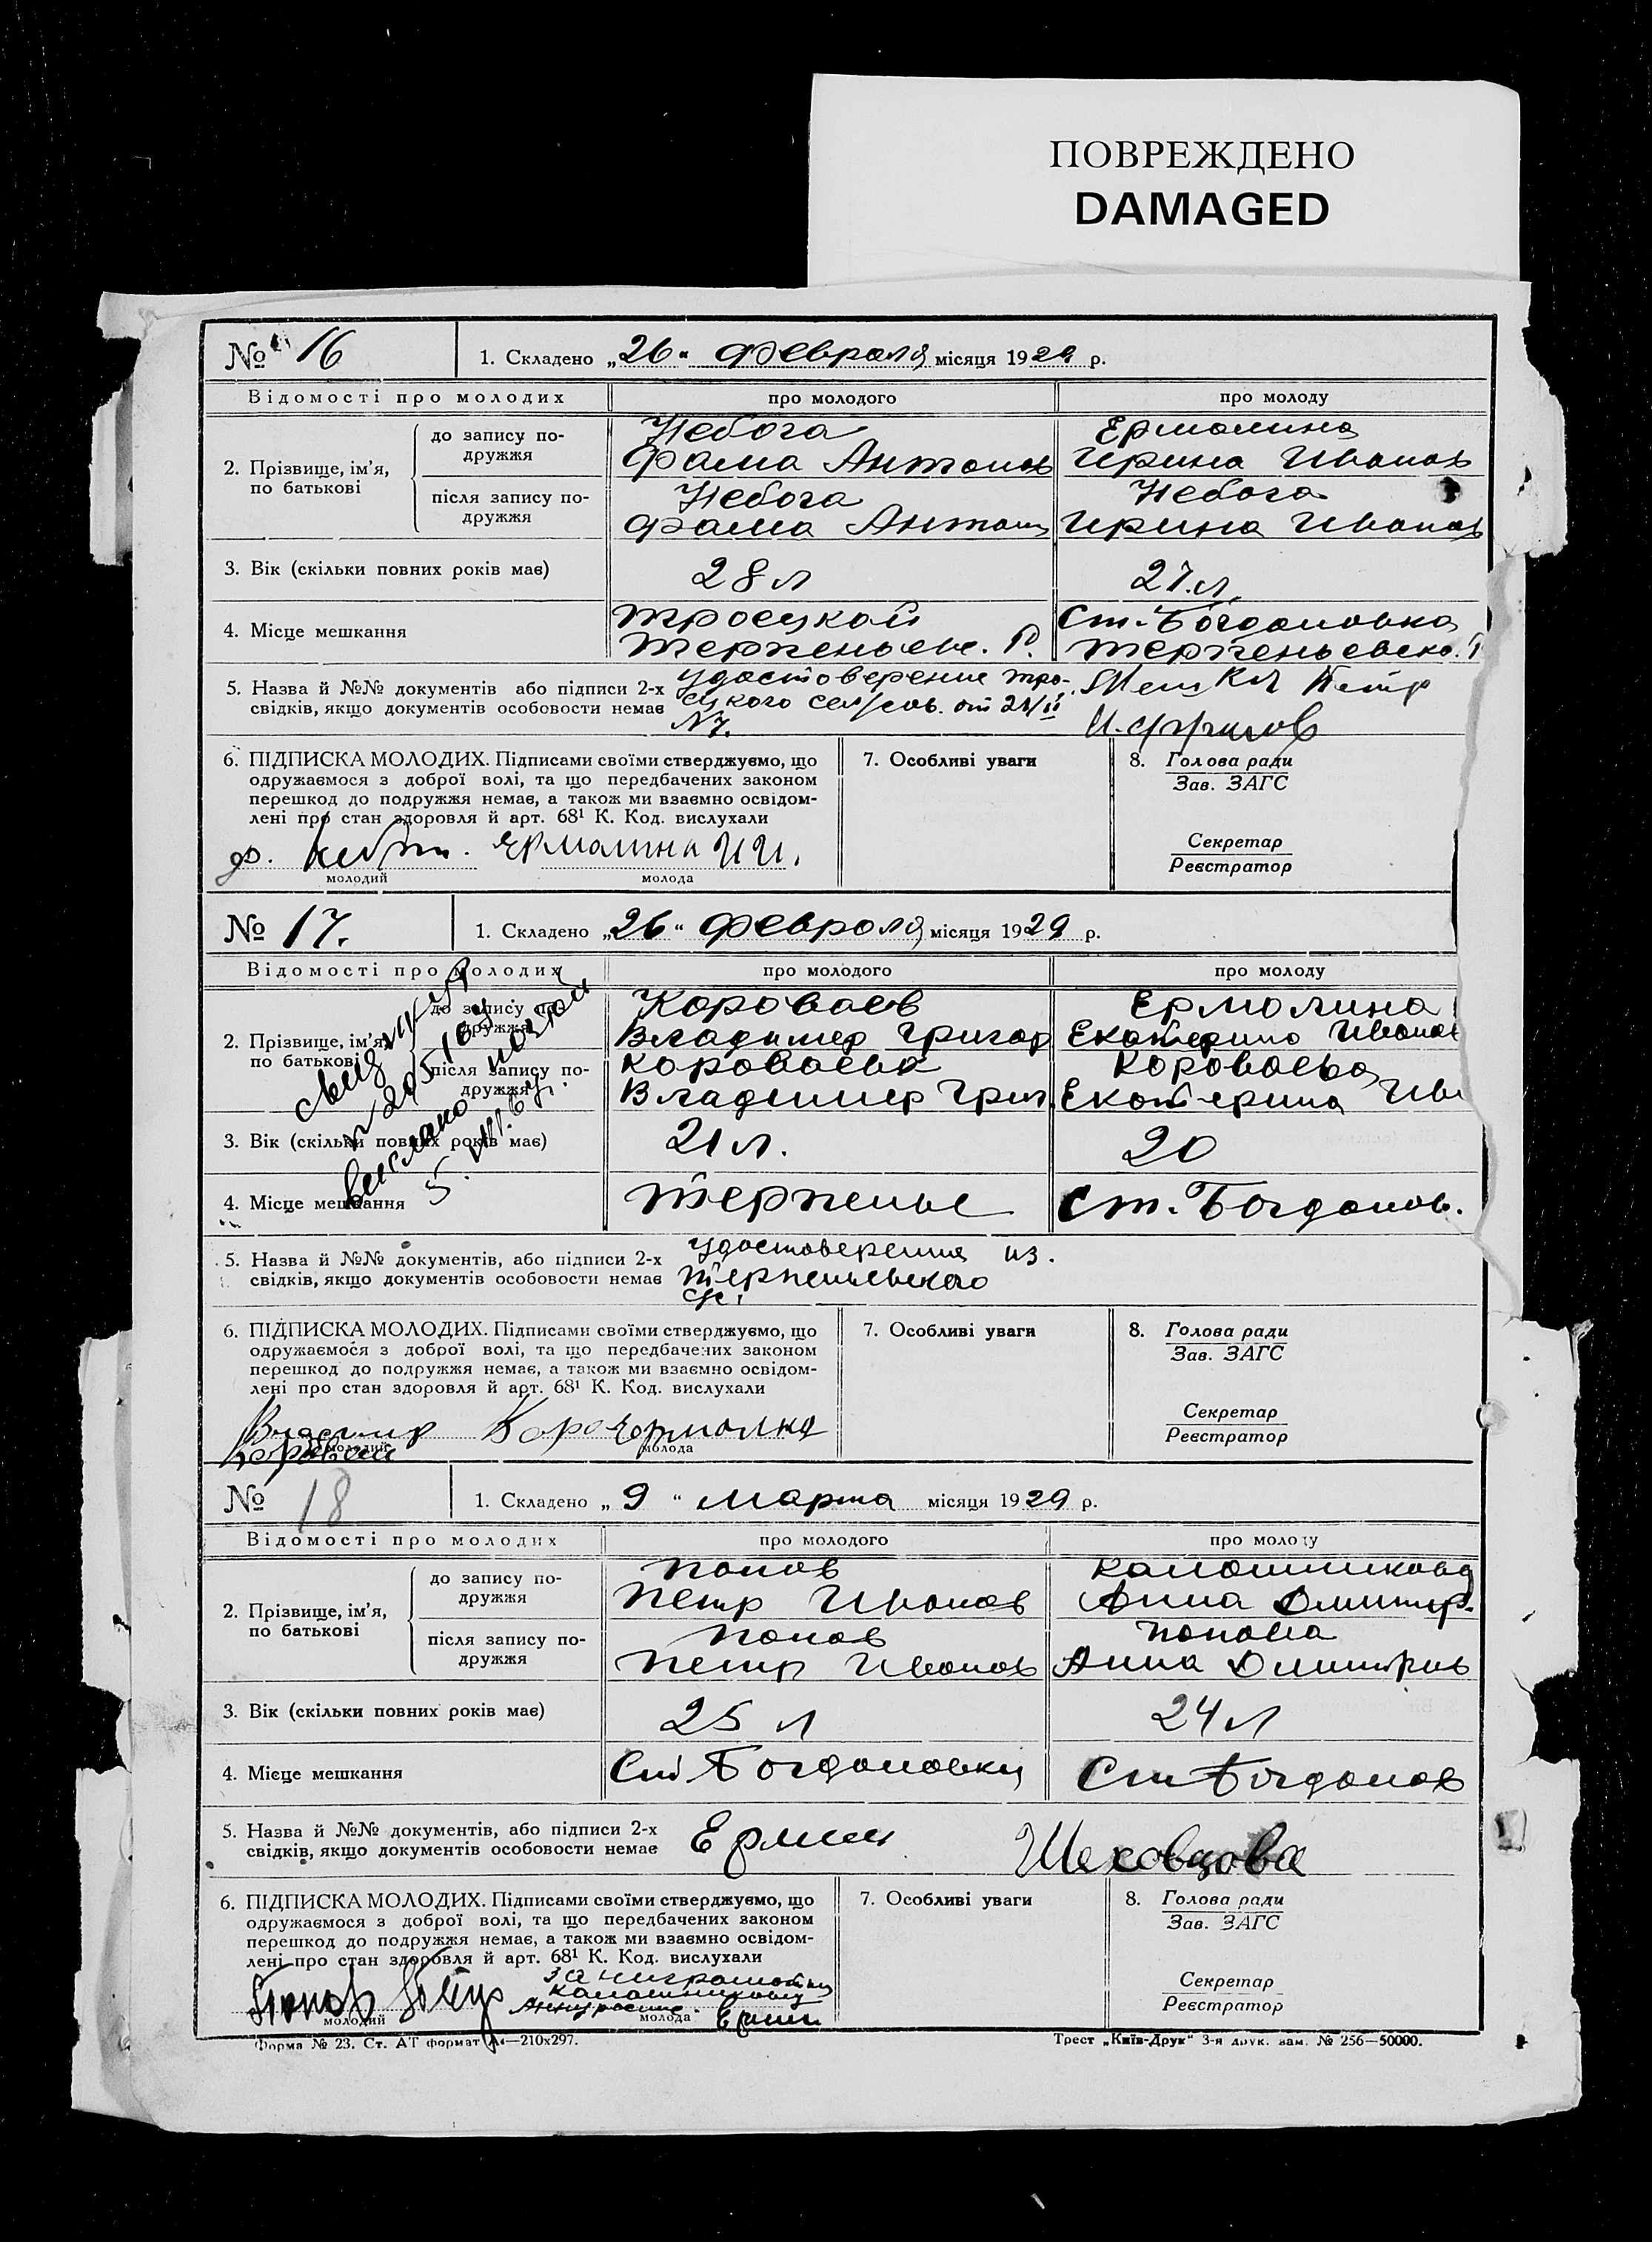 ПОВРЕЖДЕНО
DAMAGED
№ 16
1. Складено „26“ февраля місяця 1929 р.
Відомості про молодих
про молодого
про молоду
2. Прізвище, ім'я, по батькові
до запису подружжя
Небога
Фама Антонов
Ермолина
Ирина Иванов
після запису подружжя
Небога
Фама Антон
Небога
Ирина Иванов
3. Вік (скільки повних років має)
28 л
27.л.
4. Місце мешкання
Троецкой
Терпеньев. Р.
Ст. Богдановка
Терпеньевско.
5. Назва й №№ документів або підписи 2-х
свідків, якщо документів особовости немає
удостоверение тро-
ецкого сел/сов. от 21/II
N7.
Петр
6. ПІДПИСКА МОЛОДИХ. Підписами своїми стверджуємо, що
одружаємося з доброї волі, та що передбачених законом
перешкод до подружжя немає, а також ми взаємно освідом-
лені про стан здоровля й арт. 68¹ К. Код. вислухали
Ермолина И И.
молодий
молода
7. Особливі уваги
8. Голова ради
Зав. ЗАГС
Секретар
Реєстратор
№ 17.
1. Складено „26“ февраля місяця 1929 р.
Відомості про молодих
про молодого
про молоду
2. Прізвище, ім'я, по батькові
до запису подружжя
Короваев
Владимер Григор
Ермолина
Екатерина Иванов
після запису подружжя
Короваев
Владимер Григ.
Короваева
Екатерина Ива
выслано почтой
3. Вік (скільки повних років має)
21 л.
20
4. Місце мешкання
Терпенье
Ст. Богданов.
5. Назва й №№ документів, або підписи 2-х
свідків, якщо документів особовости немає
удостоверения из.
Терпеньевского
с/с.
6. ПІДПИСКА МОЛОДИХ. Підписами своїми стверджуємо, що
одружаємося з доброї волі, та що передбачених законом
перешкод до подружжя немає, а також ми взаємно освідом-
лені про стан здоровля й арт. 68¹ К. Код. вислухали
Владимир
молодий
молода
7. Особливі уваги
8. Голова ради
Зав. ЗАГС
Секретар
Реєстратор
№ 18
1. Складено „9“ марта місяця 1929 р.
Відомості про молодих
про молодого
про молоду
2. Прізвище, ім'я, по батькові
до запису подружжя
Попов
Петр Иванов
Калашникова
Анна Дмитр.
після запису подружжя
Попов
Петр Иванов
Попова
Анна Дмитрив
3. Вік (скільки повних років має)
25 л
24 л
4. Місце мешкання
Ст. Богдановки
Ст Богданов
5. Назва й №№ документів, або підписи 2-х
свідків, якщо документів особовости немає
Ермин
Шеховцова
6. ПІДПИСКА МОЛОДИХ. Підписами своїми стверджуємо, що
одружаємося з доброї волі, та що передбачених законом
перешкод до подружжя немає, а також ми взаємно освідом-
лені про стан здоровля й арт. 68¹ К. Код. вислухали
Попов Петр
за неграмотную
Калашникову
Анну росписе
Ермин
молодий
молода
7. Особливі уваги
8. Голова ради
Зав. ЗАГС
Секретар
Реєстратор
Форма № 23. Ст. АТ формат А4—210x297.
Трест „Київ-Друк“ 3-я друк. зам. № 256—50000.